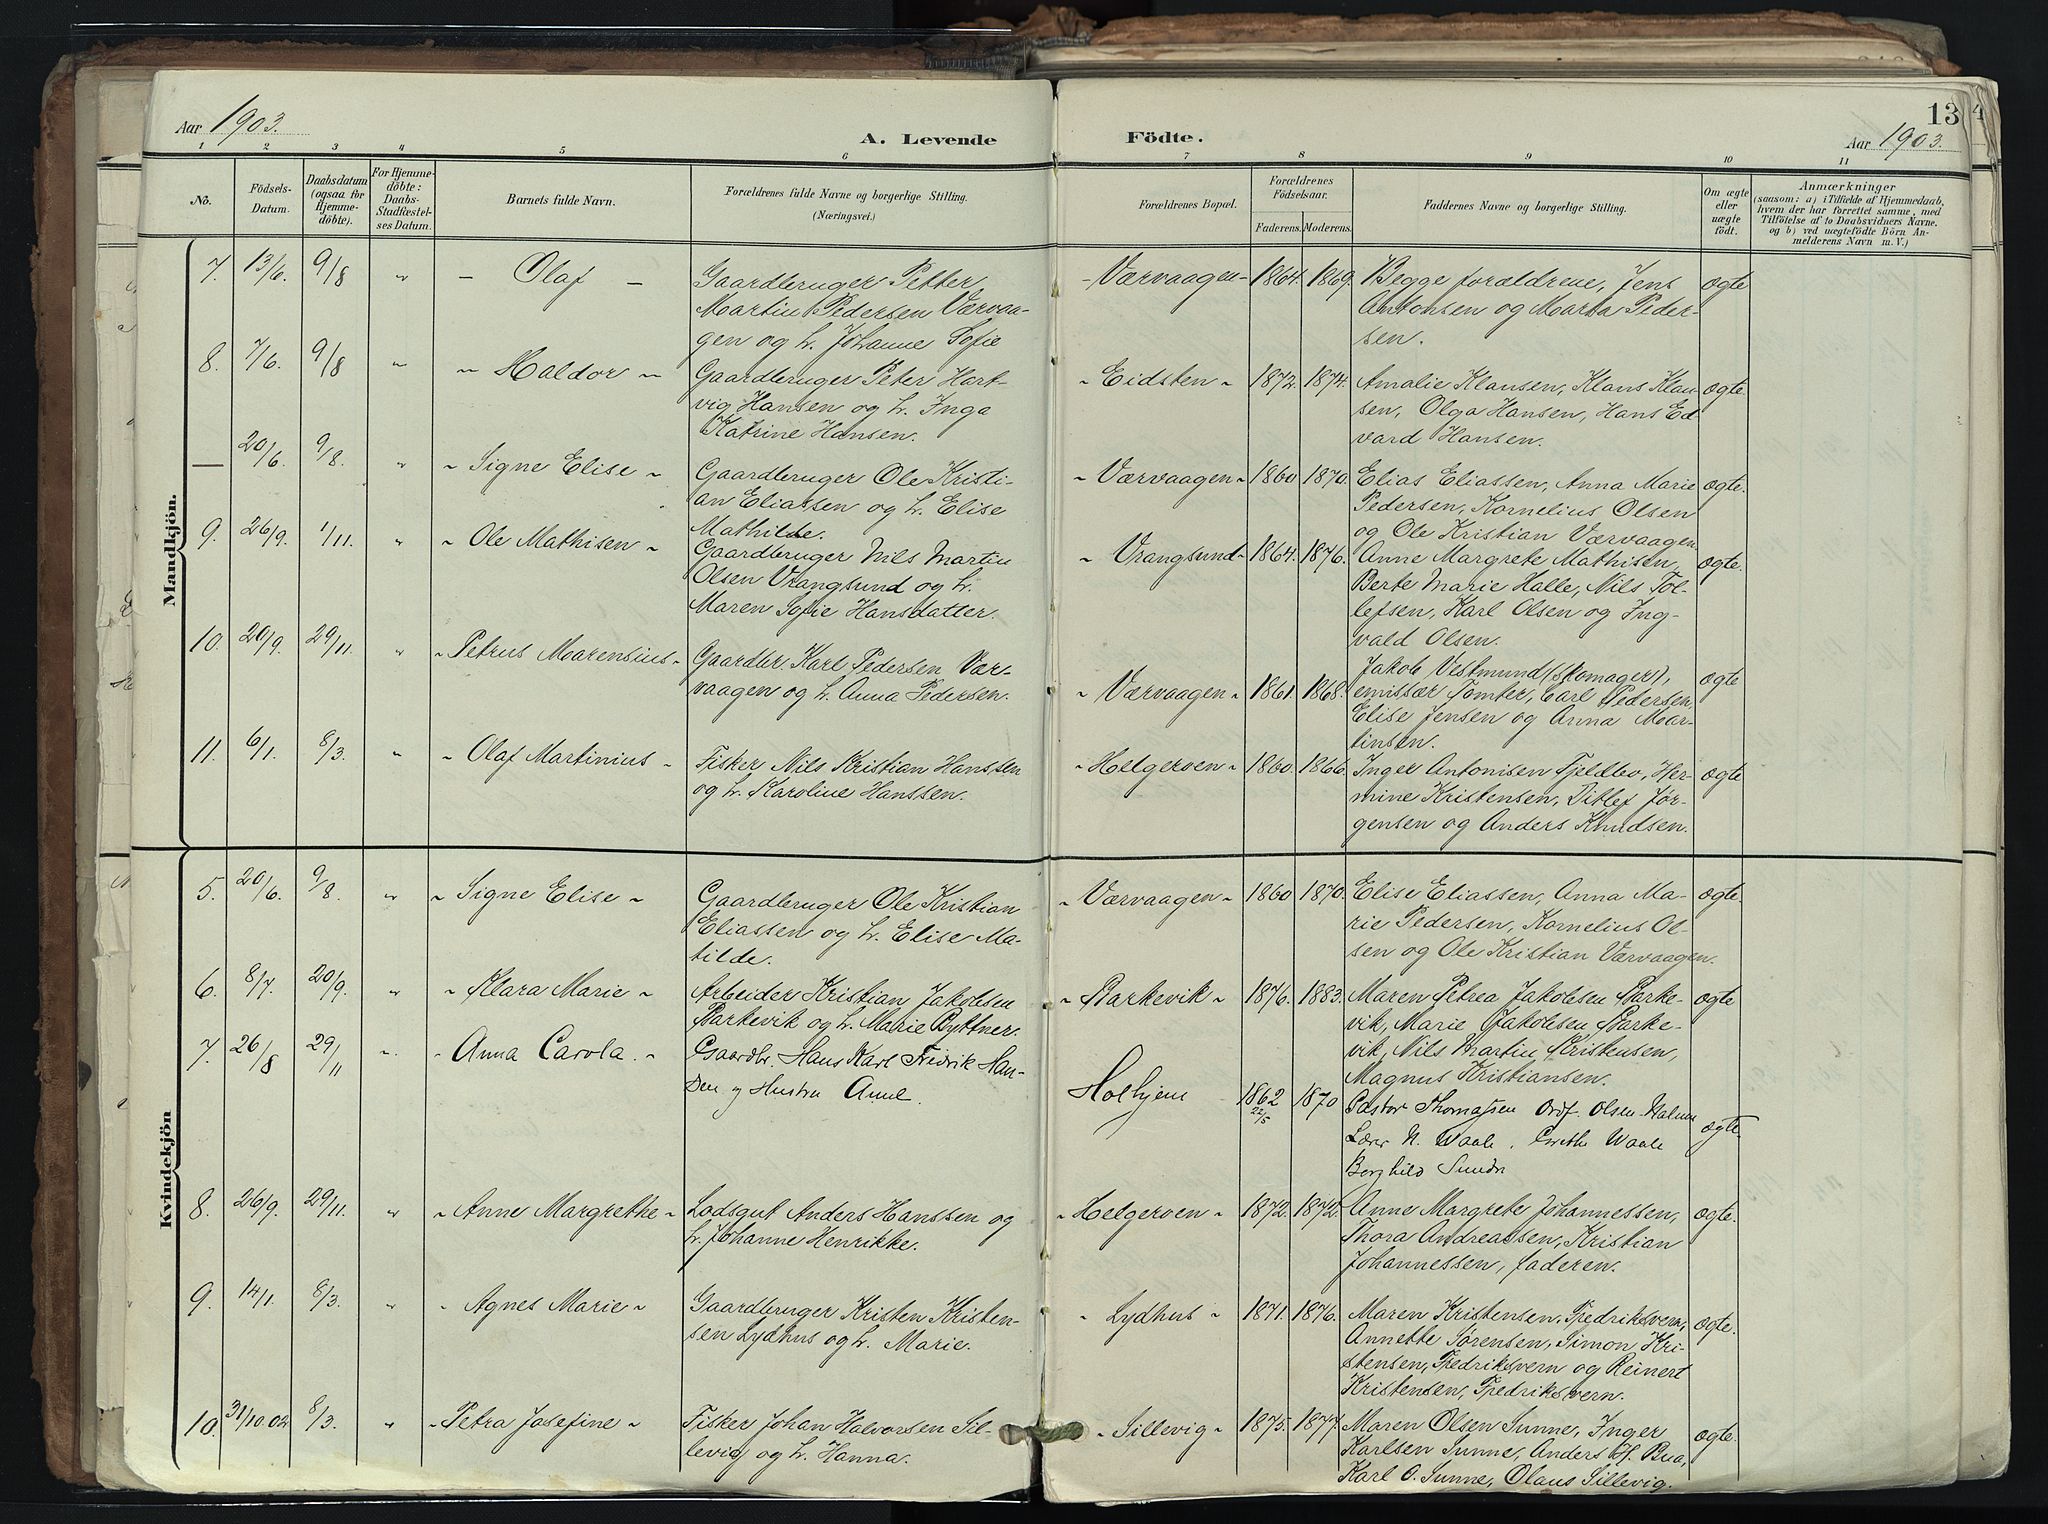 Aar 1903.
A. Levende
Födte.
13
4
Aar 1903.
1 2 3 4 5 6 7 8 9 10 11
No.
Födsels-
Datum.
Daabsdatum
(ogsaa for
Hjemme-
döbte).
For Hjemme-
döbte:
Daabs-
Stadfæstel-
ses Datum.
Barnets fulde Navn.
Forældrenes fulde Navne og borgerlige Stilling.
(Næringsvei.)
Forældrenes Bopæl.
Forældrenes
Födselsaar.
Faderens. Moderens.
Faddernes Navne og borgerlige Stilling.
Om ægte
eller
uægte
födt.
Anmærkninger
(saasom: a) i Tilfælde af Hjemmedaab,
hvem der har forrettet samme, med
Tilföielse af to Daabsvidners Navne,
og b) ved uægtefödte Börn An-
melderens Navn m. V.)
Mandkjön.
7. 13/6. 9/8 " - Olaf - Gaardbruger Petter
Martin Pedersen Værvaa-
gen og h. Johanne Sofie
- Værvaagen - 1864. 1869. Begge forældrene, Jens
Antonsen og Marta Peder-
sen.
ægte
8. 7/6. 9/8 " " Haldor " Gaardbruger Peter Hart-
vig Hansen og h. Inga
Katrine Hansen.
" Eidsten " 1872. 1874. Amalie Klausen, Klaus Klau-
sen, Olga Hansen, Hans Ed
vard Hansen.
ægte
— 20/6. 9/8. " " Signe Elise " Gaardbruger Ole Kristi-
an Eliassen og h. Elise
Mathilde.
" Værvaagen " 1860 1870. Elias Eliassen, Anna Marie
Pedersen, Kornelius Olsen
og Ole Kristian Værvaagen
ægte.
9. 26/9. 1/11. " " Ole Mathisen " Gaardbruger Nils Martin
Olsen Vrangsund og h.
Maren Sofie Hansdatter.
" Vrangsund " 1864. 1876. Anne Margrete Mathisen,
Berte Marie Halle, Nils Tol-
lefsen, Karl Olsen og Ing-
vald Olsen.
ægte.
10. 20/9. 29/11. " " Petrus Marensius " Gaardbr. Karl Pedersen Vær-
vaagen og h. Anna Pedersen.
" Værvaagen " 1861. 1868. Jakob Vestmund (Skomager),
emissær Tomter, Carl Pedersen,
Elise Jensen og Anna Mar-
tinsen.
ægte
11. 6/1. 8/3. " " Olaf Martinius " Fisker Nils Kristian Hanssen
og h. Karoline Hanssen.
" Helgeroen " 1860. 1866. Inger Antonisen Fjeldbo, Her-
mine Kristensen, Ditlef Jør-
gensen og Anders Knudsen.
ægte
Kvindekjön
5. 20/6. 9/8. " " Signe Elise " Gaardbruger Ole Kristian
Eliassen og h. Elise Ma-
tilde.
" Værvaagen " 1860 1870. Elise Eliassen, Anna Ma-
rie Pedersen, Kornelius Ol-
sen og Ole Kristian Værvaagen.
ægte.
6. 8/7. 20/9. " " Klara Marie " Arbeider Kristian Jakobsen
Barkevik og h. Marie Byttner.
" Barkevik " 1876. 1883. Maren Petrea Jakobsen Barke-
vik, Marie Jakobsen Barke-
vik, Nils Martin Kristensen,
Magnus Kristiansen.
ægte
7. 26/8 29/11 " " Anna Carola. " Gaardbr. Hans Karl Fredrik Han-
sen og Hustru Anne.
Holhjem 1862 22/5 1870 Pastor Thomassen Ordf. Olsen-Nalum
Lærer N. Waale. Grethe Waale
Borghild Sundn
ægte.
8. 26/9. 29/11. " " Anne Margrethe " Lodsgut Anders Hanssen og
h. Johanne Henrikke.
" Helgeroen " 1872. 1872. Anne Margrete Johannessen,
Thora Andreassen, Kristian
Johannessen, faderen.
ægte.
9. 14/1. 8/3. " " Agnes Marie " Gaardbruger Kristen Kristen-
sen Lydhus og h. Marie.
" Lydhus " 1871. 1876. Maren Kristensen, Fredriksvern,
Annette Sørensen, Simon Kri-
stensen, Fredriksvern og Reinert
Kristensen, Fredriksvern.
ægte.
10. 31/10.02 8/3. " " Petra Josefine " Fisker Johan Halvorsen Sil-
levig og h. Hanna.
" Sillevig " 1875. 1877. Maren Olsen Sunne, Inger
Karlsen Sunne, Anders H. Bua,
Karl O. Sunne, Olaus Sillevig.
ægte.